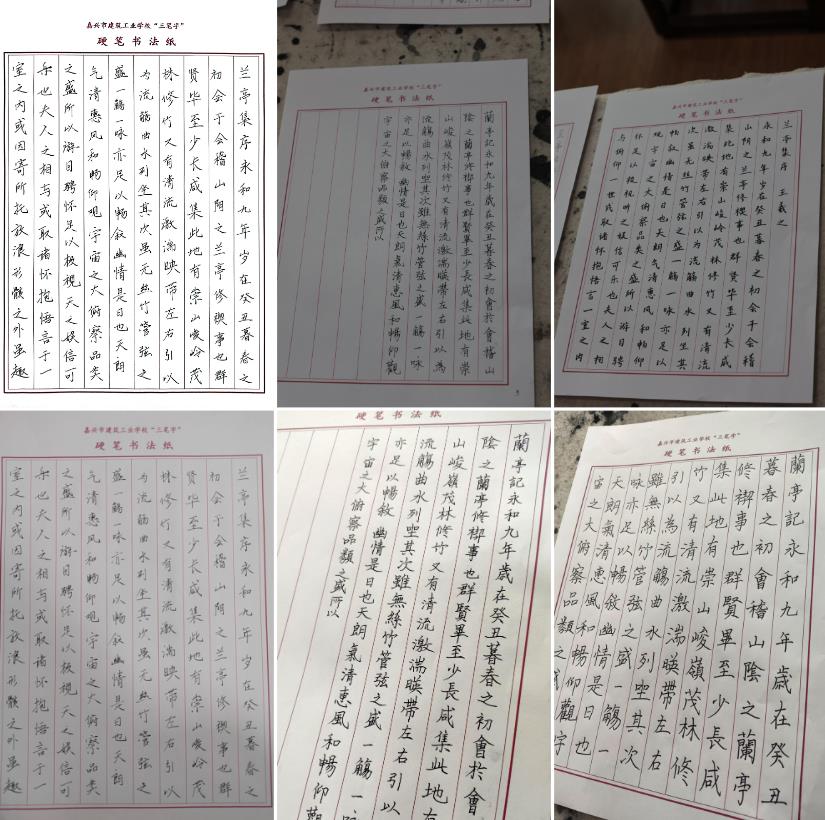 嘉兴市建筑工业学校“三笔字”
硬笔书法纸
兰亭集序永和九年岁在癸丑暮春之
初会于会稽山阴之兰亭修禊事也群
贤毕至少长咸集此地有崇山峻岭茂
林修竹又有清流激湍映带左右引以
为流觞曲水列坐其次虽无丝竹管弦之
盛一觞一咏亦足以畅叙幽情是日也天朗
气清惠风和畅仰观宇宙之大俯察品类
之盛所以游目骋怀足以极视天之娱信可
乐也夫人之相与或取诸怀抱悟言于一
室之内或因寄所托放浪形骸之外虽趣
嘉兴市建筑工业学校“三笔字”
硬笔书法纸
蘭亭記永和九年歲在癸丑暮春之初會於會稽山
陰之蘭亭修禊事也群賢畢至少長咸集此地有崇
山峻嶺茂林修竹又有清流激湍暎帶左右引以為
流觴曲水列坐其次雖無絲竹管弦之盛一觴一咏
亦足以暢敘幽情是日也天朗氣清惠風和暢仰觀
宇宙之大俯察品類之盛所以
嘉兴市建筑工业学校“三笔字”
硬笔书法纸
兰亭集序 王羲之
永和九年岁在癸丑暮春之初会于会稽
山阴之兰亭修禊事也群贤毕至少长咸
集此地有崇山峻岭茂林修竹又有清流
激湍映带左右引以为流觞曲水列坐其
次虽无丝竹管弦之盛一觞一咏亦足以
畅叙幽情是日也天朗气清惠风和畅仰
观宇宙之大俯察品类之盛所以游目骋
怀足以极视听之娱信可乐也夫人之相
与俯仰一世或取诸怀抱悟言一室之内
嘉兴市建筑工业学校“三笔字”
硬笔书法纸
兰亭集序永和九年岁在癸丑暮春之
初会于会稽山阴之兰亭修禊事也群
贤毕至少长咸集此地有崇山峻岭茂
林修竹又有清流激湍映带左右引以
为流觞曲水列坐其次虽无丝竹管弦之
盛一觞一咏亦足以畅叙幽情是日也天朗
气清惠风和畅仰观宇宙之大俯察品类
之盛所以游目骋怀足以极视天之娱信可
乐也夫人之相与或取诸怀抱悟言于一
室之内或因寄所托放浪形骸之外虽趣
硬笔书法纸
蘭亭記永和九年歲在癸丑暮春之初會於會
陰之蘭亭修禊事也群賢畢至少長咸集此地有
山峻嶺茂林修竹又有清流激湍暎帶左右引以
流觴曲水列坐其次雖無絲竹管弦之盛一觴一咏
亦足以暢敘幽情是日也天朗氣清惠風和暢仰觀
宇宙之大俯察品類之盛所以
嘉兴市建筑工业学校“三笔字”
硬笔书法纸
蘭亭記永和九年歲在癸丑
暮春之初會稽山陰之蘭亭
修禊事也群賢畢至少長咸
集此地有崇山峻嶺茂林修
竹又有清流激湍暎帶左右
引以為流觴曲水列坐其次
雖無絲竹管弦之盛一觴一
咏亦足以暢敘幽情是日也
天朗氣清惠風和暢仰觀宇
宙之大俯察品類之盛